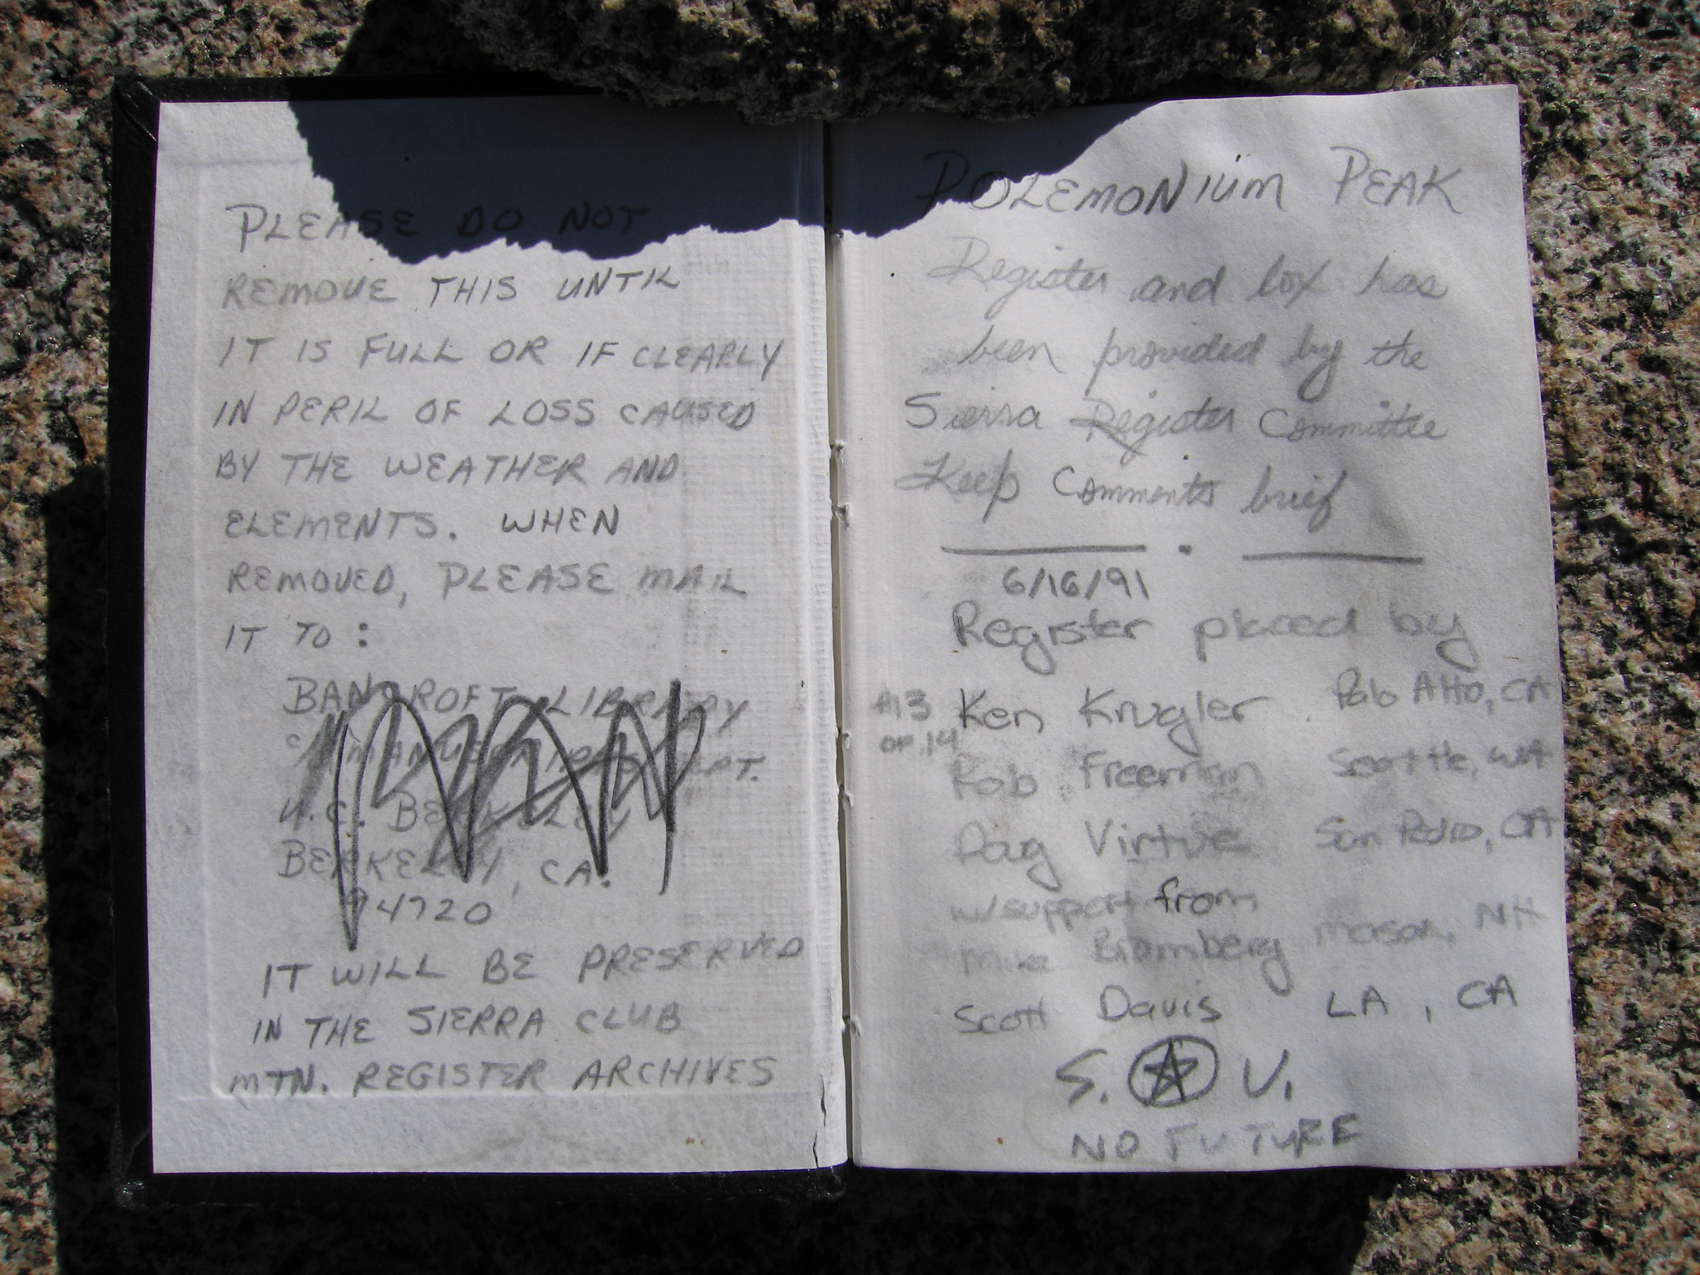 PLEASE DO NOT
REMOVE THIS UNTIL
IT IS FULL OR IF CLEARLY
IN PERIL OF LOSS CAUSED
BY THE WEATHER AND
ELEMENTS. WHEN
REMOVED, PLEASE MAIL
IT TO :
BANCROFT LIBRARY
MANUSCRIPT DEPT.
U.C. BERKELEY
BERKELEY, CA.
94720
IT WILL BE PRESERVED
IN THE SIERRA CLUB
MTN. REGISTER ARCHIVES
POLEMONIUM PEAK
Register and box has
been provided by the
Sierra Register Committee
Keep Comments brief
6/16/91
Register placed by
#13 Ken Krugler Palo Alto, CA
OF 14
Rob Freeman Seattle, WA
Doug Virtue San Pedro, CA
w/support from
Mike Bromberg Mason, NH
Scott Davis LA, CA
S. U.
NO FUTURE